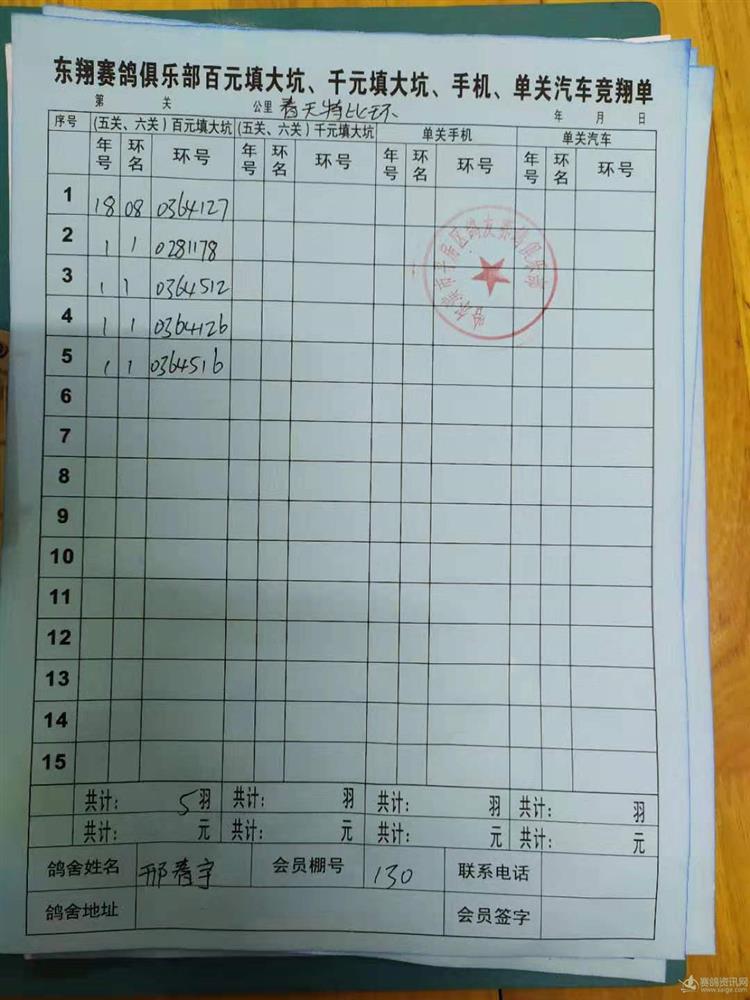 东翔赛鸽俱乐部百元填大坑、千元填大坑、手机、单关汽车竞翔单
第 关 公里 春天特比环 年 月 日
序号 (五关、六关)百元填大坑 (五关、六关)千元填大坑 单关手机 单关汽车
年号 环名 环号 年号 环名 环号 年号 环名 环号 年号 环名 环号
1 18 08 0364127
2 1 1 0281178
3 1 1 0364512
4 1 1 0364126
5 1 1 0364516
6
7
8
9
10
11
12
13
14
15
共计: 5羽 共计: 羽 共计: 羽 共计: 羽
共计: 元 共计: 元 共计: 元 共计: 元
鸽舍姓名 邢春宇 会员棚号 130 联系电话
鸽舍地址 会员签字
赛鸽资讯网
www.saige.com